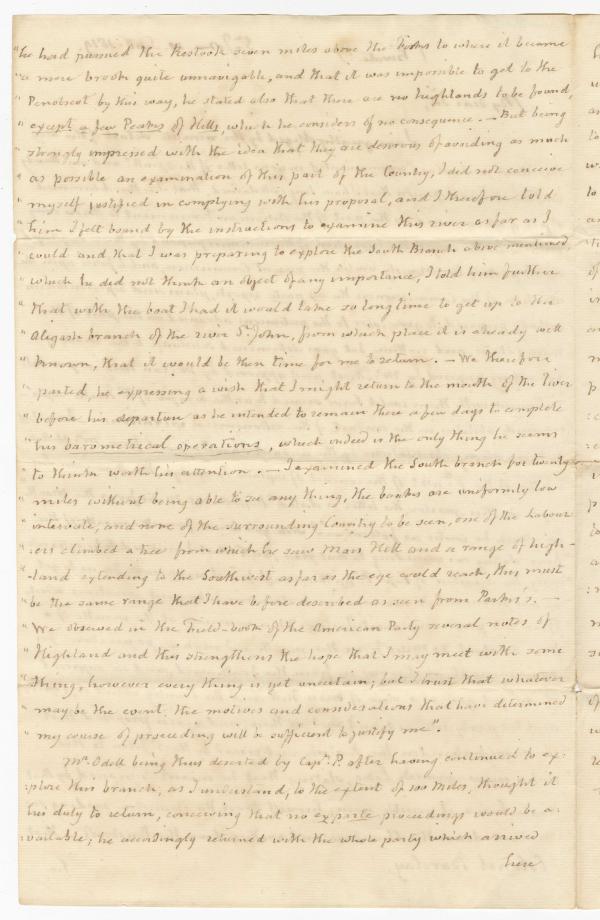 "he had pursued the Restook seven miles above the Forks to where it became
"a mere brook quite unnavigable, and that it was impossible to get to the
"Penobscot by this way, he stated also that there are no highlands to be found,
"except a few Peaks of Hills, which he considers of no consequence. — But being
"strongly impressed with the idea that they are desirous of avoiding as much
"as possible an examination of this part of the Country, I did not conceive
"myself justified in complying with his proposal, and I therefore told
"him I felt bound by the instructions to examine this river as far as I
"could and that I was preparing to explore the South Branch above mentioned
"which he did not think an object of any importance, I told him further
"that with the boat I had it would take so long time to get up to the
"Aligash branch of the river St. John, from which place it is already well
"known, that it would be then time for me to return. — We therefore
"parted, he expressing a wish that I might return to the mouth of the river
"before his departure as he intended to remain there a few days to complete
"his barometrical operations, which indeed is the only thing he seems
"to think worth his attention. — I examined the South branch for twenty
"miles without being able to see any thing, the banks are uniformly low
"intervale, and none of the surrounding Country to be seen, one of the labour-
"ers climbed a tree from which he saw Mars Hill and a range of high-
"-land extending to the Southwest as far as the eye could reach, this must
"be the same range that I have before described as seen from Parks's. —
"We observed in the Field-book of the American Party several notes of
"Highland and this strengthens the hope that I may meet with some
"thing, however every thing is yet uncertain; but I trust that whatever
"may be the event the motives and considerations that have determined
"my course of proceeding will be sufficient to justify me".
Mr. Odell being thus deserted by Capt. P. after having continued to ex-
:plore this branch, as I understand, to the extent of 100 Miles, thought it
his duty to return, conceiving that no ex parte proceedings would be a:
:vailable; he accordingly returned with the whole party which arrived
here